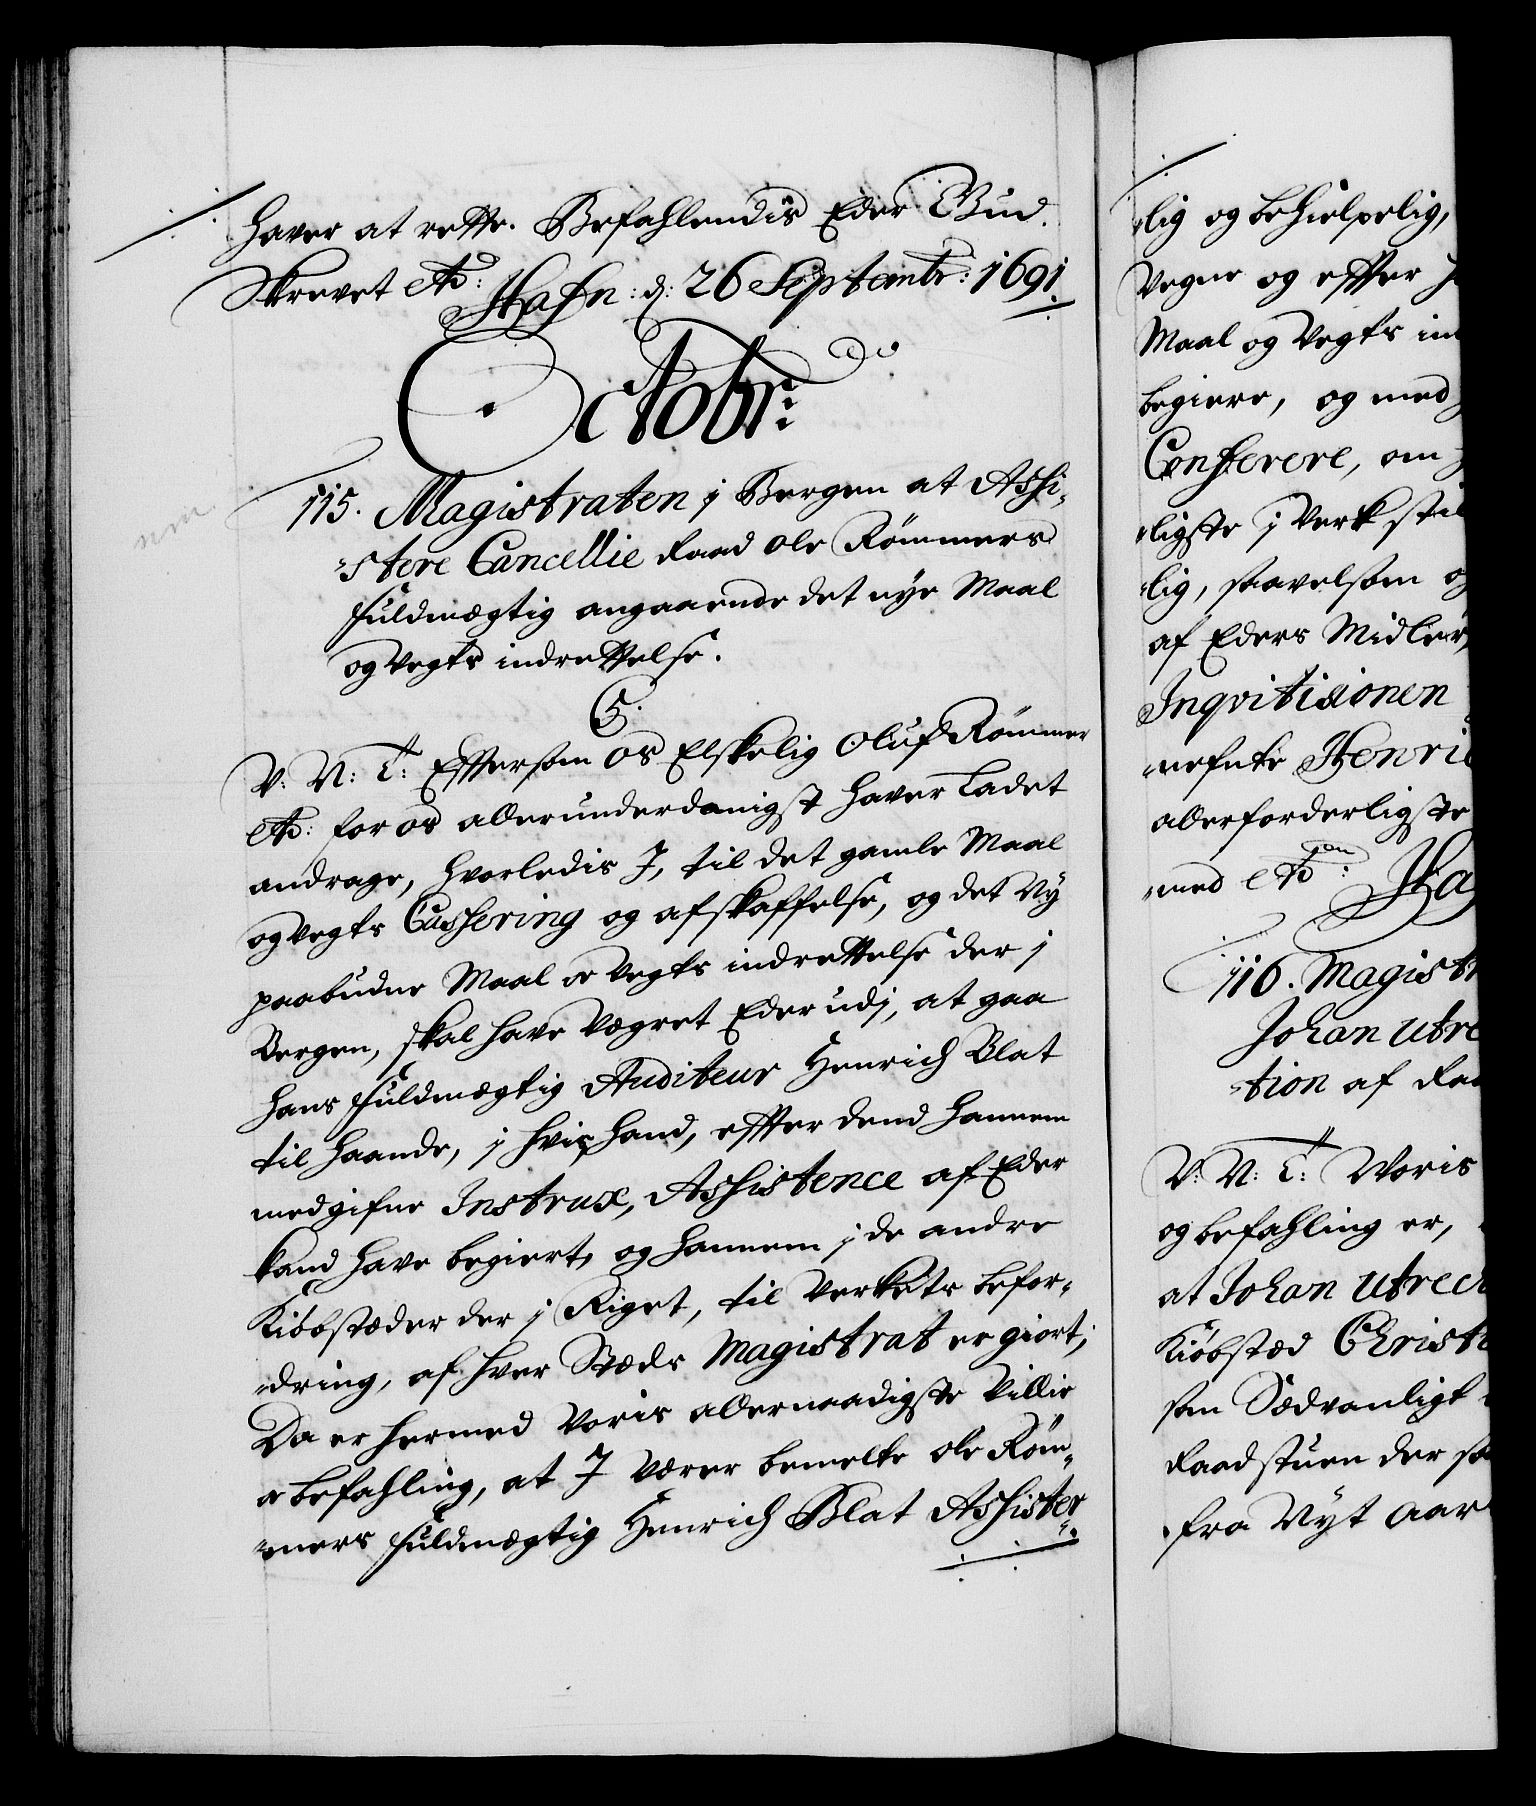 haver at rette. Befahlendis Eder Gud.
Skrevet etc: Hafn: d: 26 Septembr: 1691
Octobr:
115. Magistraten j Bergen at Assi-
stere Cancellie Raad Ole Rømmers
fuldmægtig angaaende det nye Maal
og Vegts indrettelse.
5.
V: N: T: Eftersom os Elskelig Oluf Rømmer
etc: for os allerunderdanigst haver Ladet
andrage, hvorledis J, til det gamle Maal
og Vegts Cassering og afskaffelse, og det Ny
paabudne Maal oc Vegts indrettelse der j
Bergen, skal have Vægret Eder udj, at gaa
hans fuldmægtig Auditeur Henrich Blat
til haande, j hvis hand, effter dend hannem
medgifne Instrux, Assistence af Eder
kand have begiert, og hannem j de andre
Kiøbstæder der j Riget, til Verkets befor-
dring, af hver Stæds Magistrat er giort;
Da er hermed Voris allernaadigste Villie
oc befahling, at J værer bemelte Ole Røm-
mers fuldmægtig Henrich Blat Assister
lig og behielpelig,
Vegne og effter
Maal og Vegts in
begiere, og med
Conferere, om
ligste j Verk stil
lig, saavelsom og
af Eders Midler,
Inqvisitionen
nefnte Henri
allerforderligste
med etc: Ha
116. Magistr
Johan Utre
tion af Raa
V: N: T: Voris
og befahling er,
at Johan Utrec
Kiøbsted Christi
som Sædvanligt
Raadstuen der sa
fra Nyt Aar